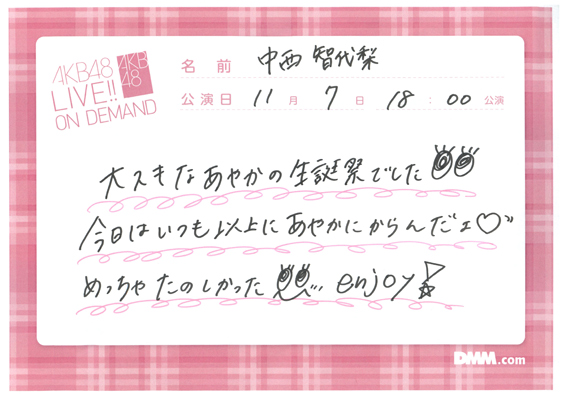 AKB48
LIVE!!
ON DEMAND
AKB
48
名前 中西 智代梨
公演日 11月7日 18:00公演
大スキなあやかの生誕祭でした
今日はいつも以上にあやかにからんだェ♡"
めっちゃたのしかった ... enjoy!
DMM.com